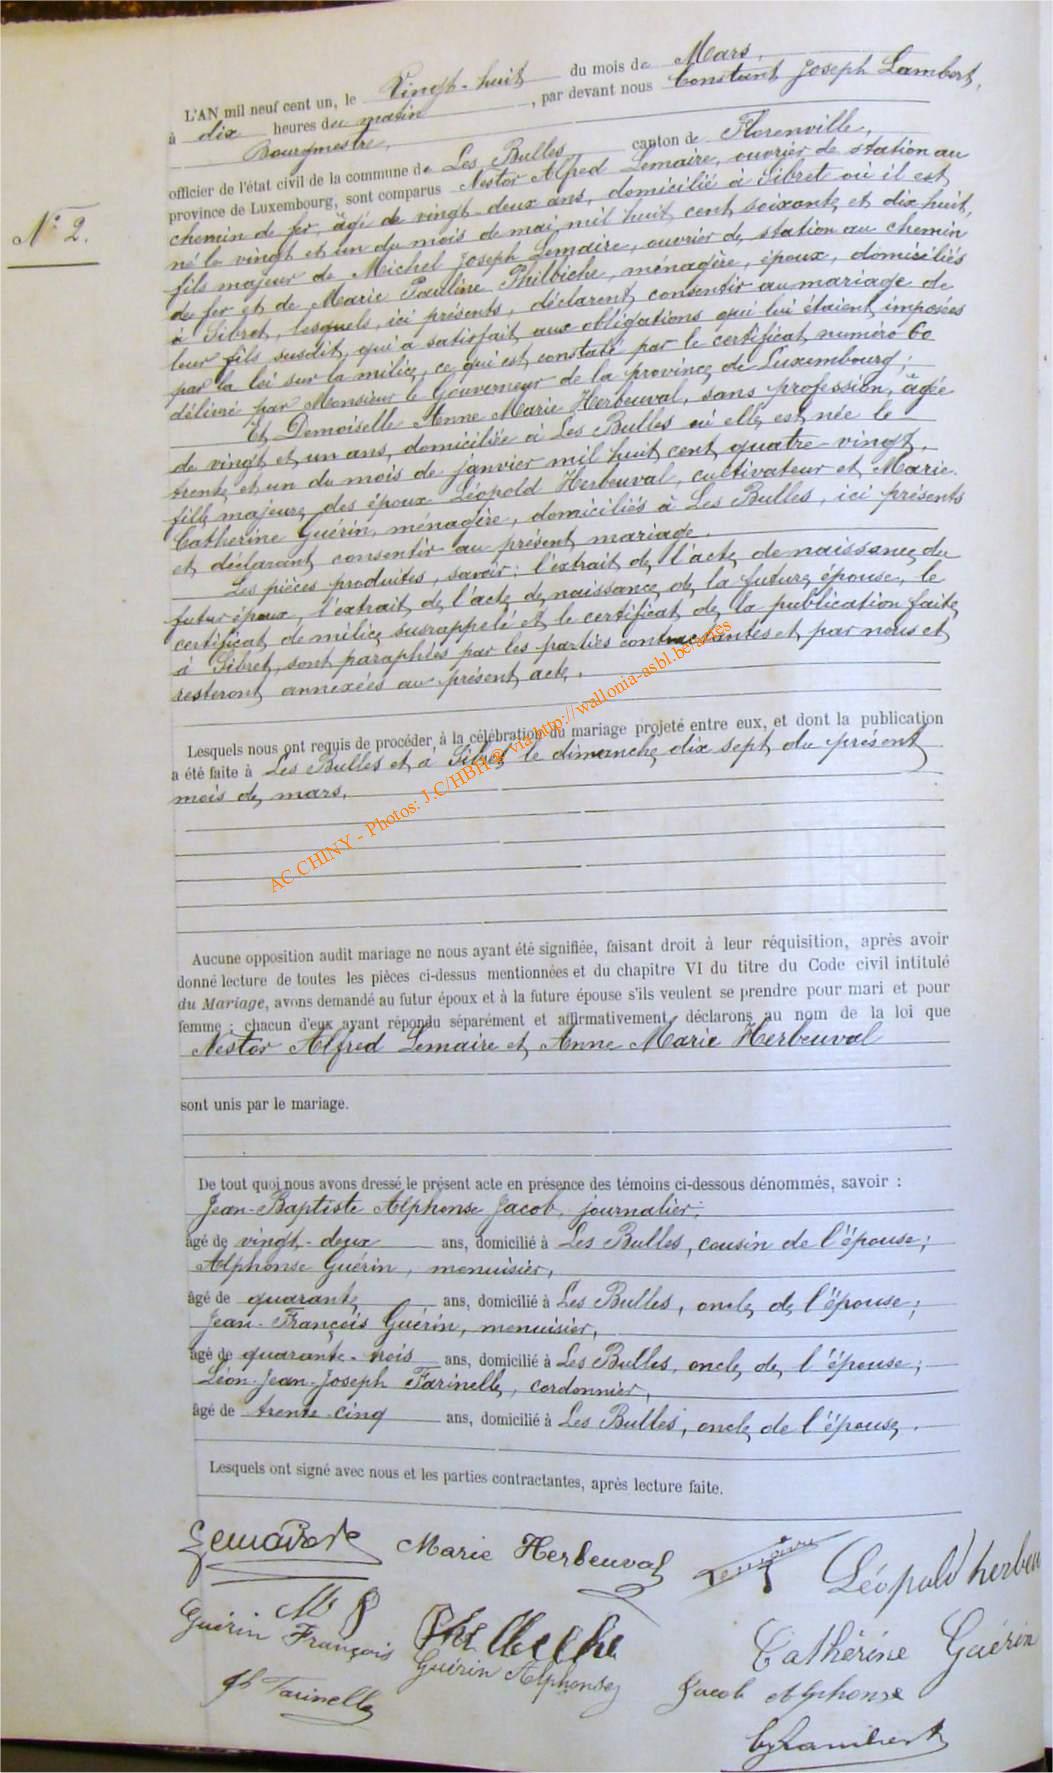 N° 2.
L'AN mil neuf cent un, le Vingt-huit du mois de Mars,
à dix heures du matin, par devant nous Constant Joseph Lambert,
Bourgmestre,
officier de l'état civil de la commune de Les Bulles canton de Florenville,
province de Luxembourg, sont comparus Nestor Alfred Lemaire, ouvrier de station au
chemin de fer, âgé de vingt-deux ans, domicilié à Sibret où il est
né le vingt et un du mois de mai mil huit cent soixante et dix huit,
fils majeur de Michel Joseph Lemaire, ouvrier de station au chemin
de fer et de Marie Pauline Philbiche, ménagère, époux, domiciliés
à Sibret, lesquels, ici présents, déclarent consentir au mariage de
leur fils susdit, qui a satisfait aux obligations qui lui étaient imposées
par la loi sur la milice, ce qui est constaté par le certificat numéro 60
délivré par Monsieur le Gouverneur de la province de Luxembourg;
Et Demoiselle Anne Marie Herbeuval, sans profession, âgée
de vingt et un ans, domiciliée à Les Bulles où elle est née le
trente et un du mois de janvier mil huit cent quatre-vingt,
fille majeure des époux Léopold Herbeuval, cultivateur et Marie
Catherine Guérin, ménagère, domiciliés à Les Bulles, ici présents
et déclarant consentir au présent mariage.
Les pièces produites, savoir: l'extrait de l'acte de naissance du
futur époux, l'extrait de l'acte de naissance de la future épouse, le
certificat de milice susrappelé et le certificat de la publication faite
à Sibret, sont paraphées par les parties contractantes et par nous et
resteront annexées au présent acte.
Lesquels nous ont requis de procéder, à la célébration du mariage projeté entre eux, et dont la publication
a été faite à Les Bulles et à Sibret le dimanche dix sept du présent
mois de mars.
AC CHINY - Photos: J.C/HBH@ via http://wallonia-asbl.be/actes
Aucune opposition audit mariage ne nous ayant été signifiée, faisant droit à leur réquisition, après avoir
donné lecture de toutes les pièces ci-dessus mentionnées et du chapitre VI du titre du Code civil intitulé
du Mariage, avons demandé au futur époux et à la future épouse s'ils veulent se prendre pour mari et pour
femme : chacun d'eux ayant répondu séparément et affirmativement, déclarons au nom de la loi que
Nestor Alfred Lemaire et Anne Marie Herbeuval
sont unis par le mariage.
De tout quoi nous avons dressé le présent acte en présence des témoins ci-dessous dénommés, savoir :
Jean-Baptiste Alphonse Jacob, journalier,
âgé de vingt-deux ans, domicilié à Les Bulles, cousin de l'épouse;
Alphonse Guérin, menuisier,
âgé de quarante ans, domicilié à Les Bulles, oncle de l'épouse;
Jean-François Guérin, menuisier,
âgé de quarante-trois ans, domicilié à Les Bulles, oncle de l'épouse;
Léon-Jean-Joseph Farinelle, cordonnier,
âgé de trente-cinq ans, domicilié à Les Bulles, oncle de l'épouse.
Lesquels ont signé avec nous et les parties contractantes, après lecture faite.
Lemaire Marie Herbeuval Lemaire Léopold herbeu
Guérin François M P Philbiche Catherine Guérin
Guérin Alphonse Jacob Alphonse
Farinelle
Lambert